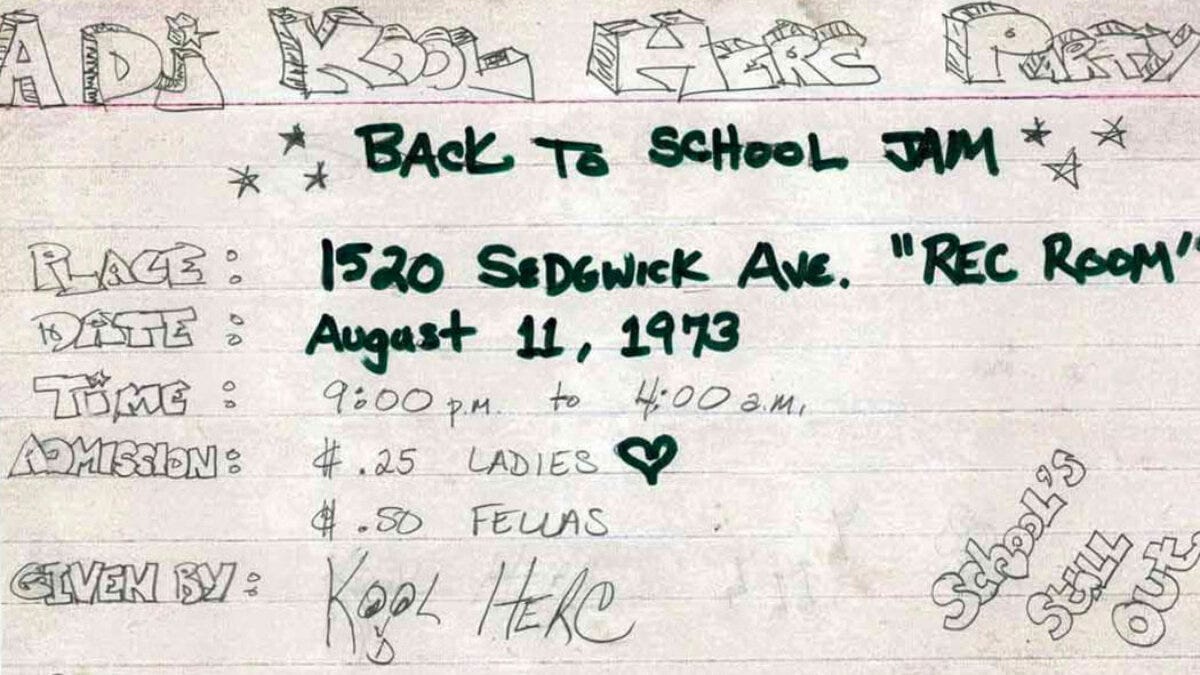 A DJ KOOL HERC PARTY
BACK TO SCHOOL JAM
PLACE: 1520 SEDGWICK AVE. "REC ROOM"
DATE: August 11, 1973
TIME: 9:00 p.m. to 4:00 a.m.
ADMISSION: $.25 LADIES ♥
$.50 FELLAS
GIVEN BY: KOOL HERC
SCHOOL'S
STILL
OUT.